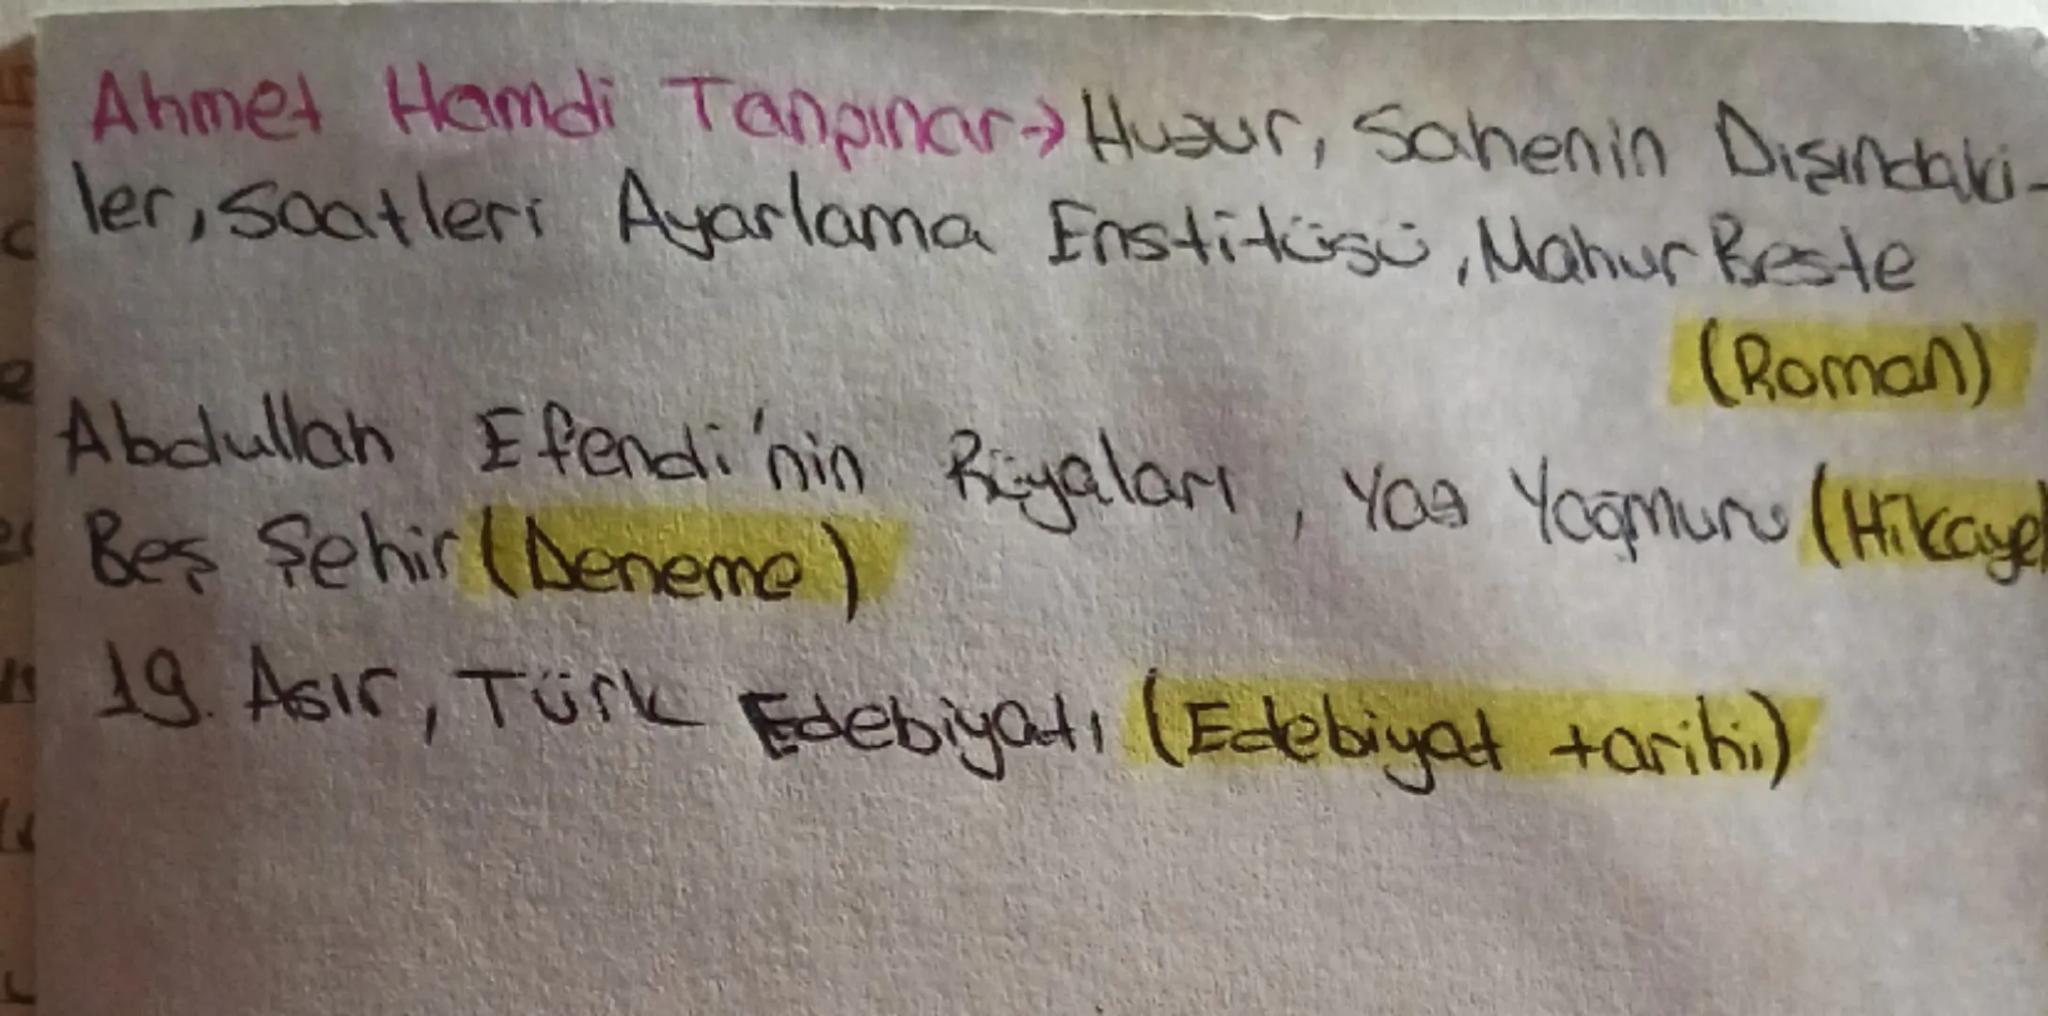 Ahmet Hamdi Tanpınar → Huzur, Sahenin Dışındaki-
ler, Saatleri Ayarlama Enstitüsü, Mahur Beste
(Roman)
Abdullah Efendi'nin Rüyaları, Yaz Yağmuru (Hikaye)
Beş Şehir (Deneme)
19. Asır, Türk Edebiyatı (Edebiyat tarihi)